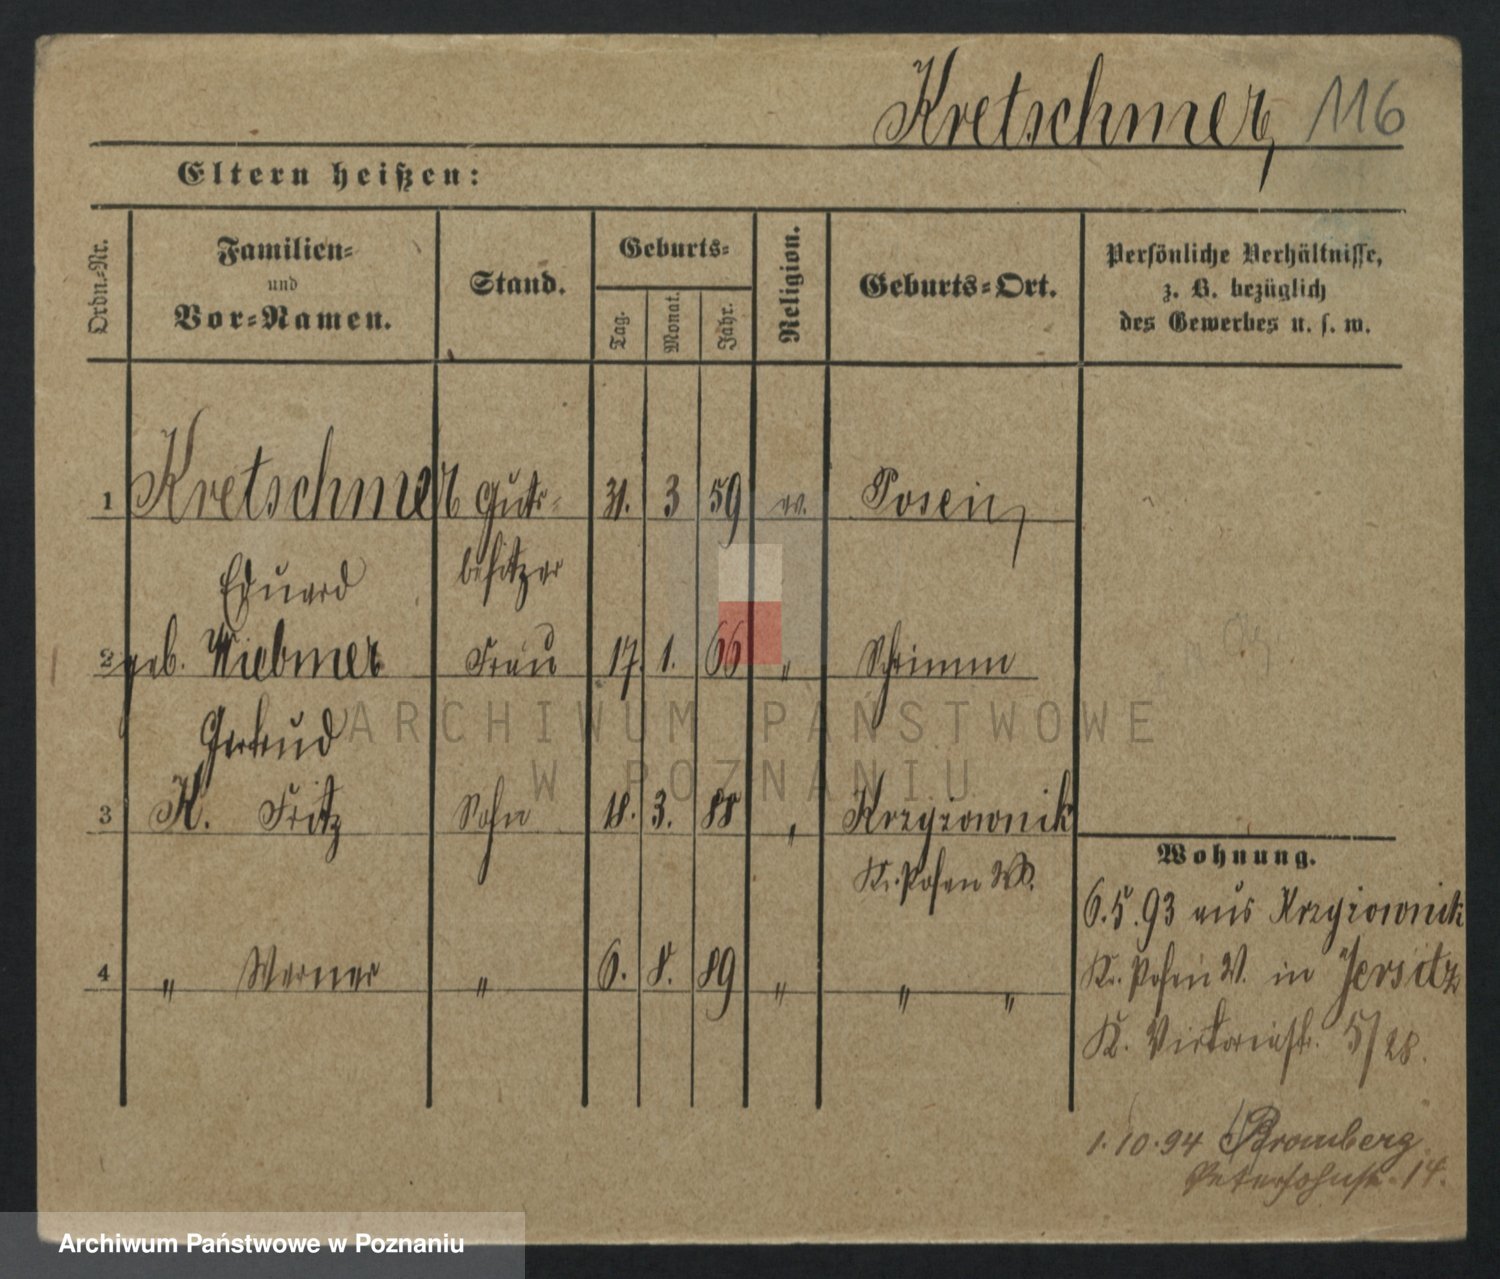 Kretschmer, 116
Eltern heißen:
Ordn.-Nr.
Familien-
und
Vor-Namen.
Stand.
Geburts-
Tag.
Monat.
Jahr.
Religion.
Geburts-Ort.
Persönliche Verhältnisse,
z. B. bezüglich
des Gewerbes u. s. w.
1 Kretschmer Guts- 31. 3 59 ev. Posen,
Eduard besitzer
2 geb. Wiebmer Frau 17. 1. 66 " Schrimm
Gertrud
3 K. Fritz Sohn 18. 3. 88 " Krzyzownik
Kr. Posen W.
4 " Werner " 6. 8. 89 " " "
Wohnung.
6.5.93 aus Krzyzownik
Kr. Posen W. in Jersitz
K. Victoriastr. 5/28.
1.10.94 Bromberg
14.
ARCHIWUM PAŃSTWOWE
W POZNANIU
Archiwum Państwowe w Poznaniu